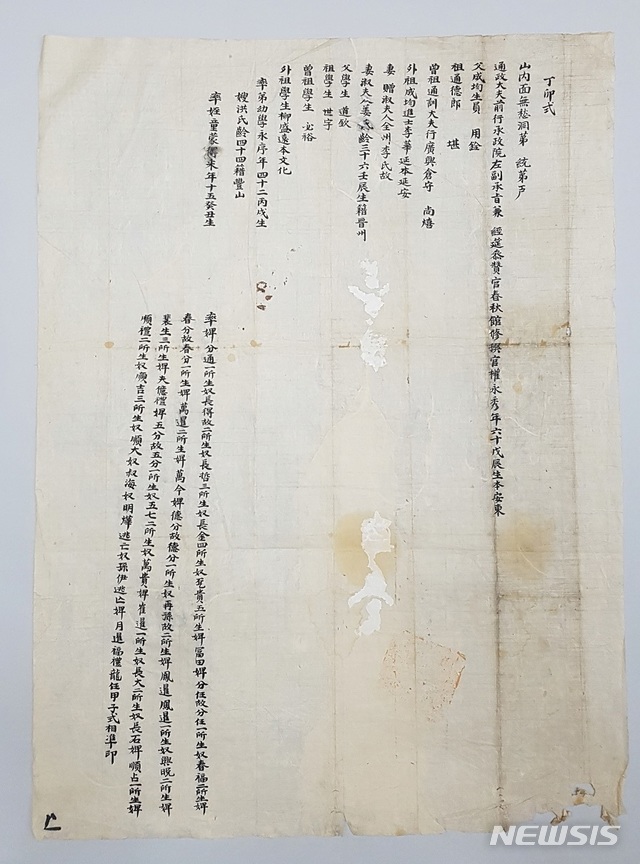 丁卯式
山內面無愁洞第 統第 戶
通政大夫前行承政院左副承旨兼 經筵參贊官春秋館修撰官權永秀年六十戊辰生本安東
父成均生員 用銓
祖通德郞 堪
曾祖通訓大夫行廣興倉守 尙熺
外祖成均進士李華延本延安
妻 贈淑夫人全州李氏故
妻淑夫人姜氏齡三十六壬辰生籍晋州
父學生 道欽
祖學生 世宇
曾祖學生 必裕
外祖學生柳盛遠本文化
率弟幼學永序年四十二丙戌生
嫂洪氏齡四十四籍豊山
率姪童蒙 年十五癸丑生
率婢分通一所生奴長得故二所生奴長哲三所生奴長金四所生奴至貴五所生婢富田婢分任故分任一所生奴春福二所生婢
春分故春分一所生婢萬暹二所生婢萬今婢德分故德分一所生奴再孫故二所生婢鳳暹鳳暹一所生奴興旣二所生婢
三所生婢夫億禮婢五分故五分一所生奴五七二所生奴萬貴婢崔暹一所生奴長大二所生奴長石婢順占一所生婢
順禮二所生奴順吉三所生奴順大奴叔海奴明燁逃亡奴孫伊逃亡婢月暹福禮龍任甲子式相準印
NEWSIS